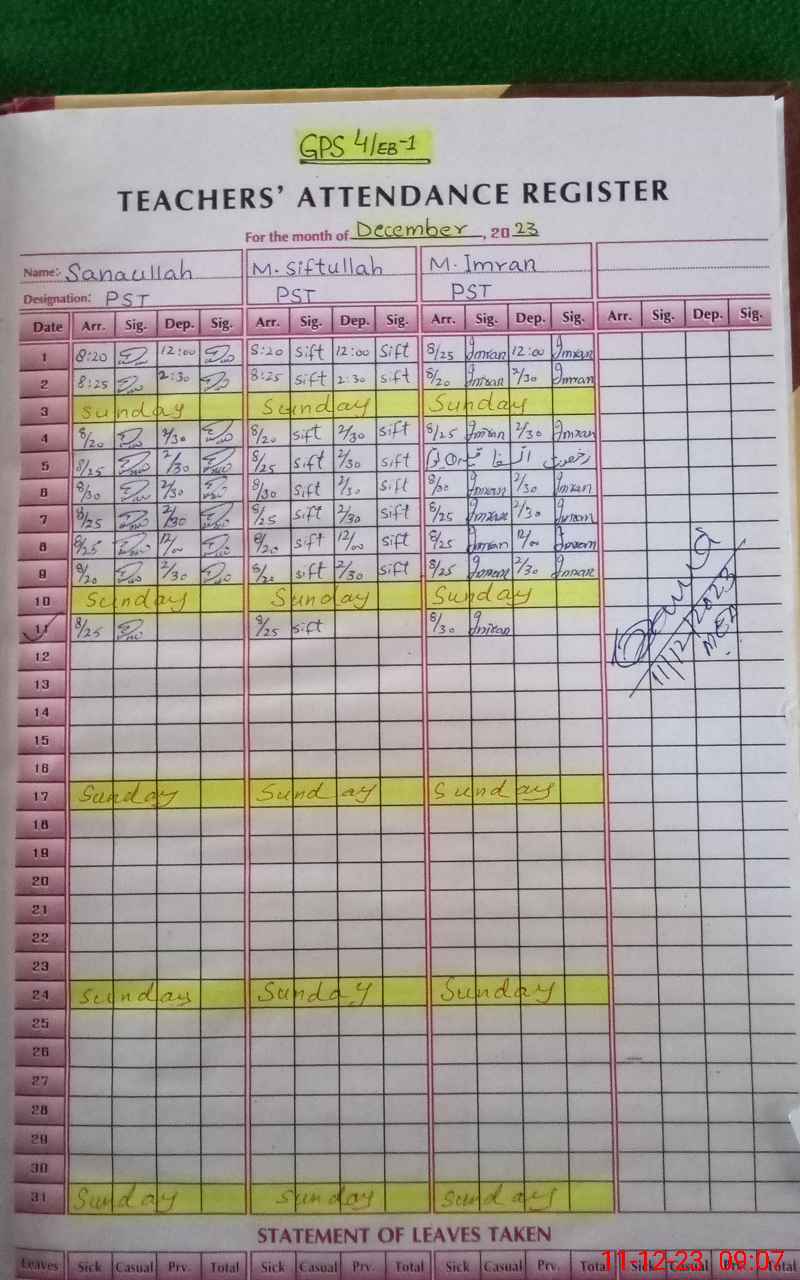 GPS 4/EB-1
TEACHERS' ATTENDANCE REGISTER
For the month of December, 2023
Name:- Sanaullah M. Siftullah M. Imran
Designation: PST PST PST
Date Arr. Sig. Dep. Sig. Arr. Sig. Dep. Sig. Arr. Sig. Dep. Sig. Arr. Sig. Dep. Sig.
1 8:20 12:00 8:20 sift 12:00 sift 8/25 Imran 12:00 Imran
2 8:25 2:30 8:25 sift 2:30 sift 8/20 Imran 2/30 Imran
3 Sunday Sunday Sunday
4 8/20 2/30 8/20 sift 2/30 sift 8/25 Imran 2/30 Imran
5 8/25 2/30 8/25 sift 2/30 sift رخصت
6 8/30 2/30 8/30 sift 2/30 sift 8/30 Imran 2/30 Imran
7 8/25 2/30 8/25 sift 2/30 sift 8/25 Imran 2/30 Imran
8 8/25 12/00 8/20 sift 12/00 sift 8/25 Imran 12/00 Imran
9 8/20 2/30 8/20 sift 2/30 sift 8/25 Imran 2/30 Imran
10 Sunday Sunday Sunday
11 8/25 8/25 sift 8/30 Imran
11/12/2023
MEA
12
13
14
15
16
17 Sunday Sunday Sunday
18
19
20
21
22
23
24 Sunday Sunday Sunday
25
26
27
28
29
30
31 Sunday Sunday Sunday
STATEMENT OF LEAVES TAKEN
Leaves Sick Casual Prv. Total Sick Casual Prv. Total Sick Casual Prv. Total Sick Casual Prv. Total
11-12-23 09:07